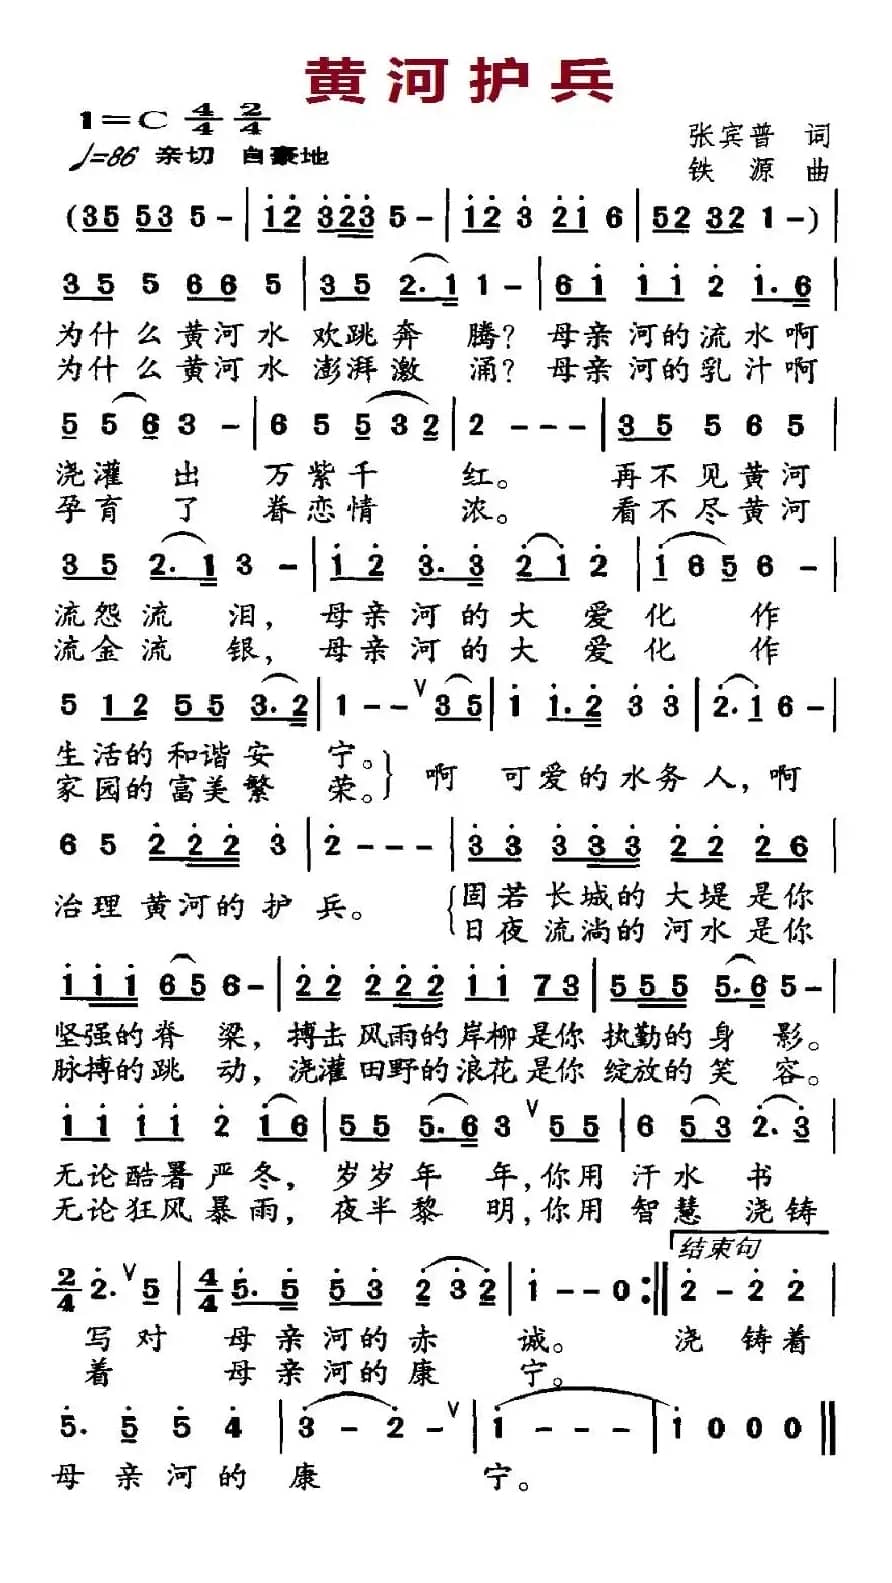 黄河护兵
1=C 4/4 2/4
♩=86 亲切 自豪地
张宾普 词
铁源 曲
(35 53 5 - | i2 323 5 - | i2 3 2i 6 | 52 32 1 - ) |
35 5 66 5 | 35 2. 1 1 - | 6i ii 2 i. 6 |
为什么黄河水 欢跳奔 腾？母亲河的流水啊
为什么黄河水 澎湃激 涌？母亲河的乳汁啊
5 5 6 3 - | 6 5 5 3 2 | 2 - - - | 35 5 6 5 |
浇灌 出 万紫千 红。 再不见黄河
孕育 了 眷恋情 浓。 看不尽黄河
35 2. 1 3 - | i 2 3. 3 2 i 2 | i 6 5 6 - |
流怨流 泪，母亲河的大 爱化 作
流金流 银，母亲河的大 爱化 作
5 12 55 3. 2 | 1 - - ∨ 35 | i i. 2 3 3 | 2. i 6 - |
生活的和谐安 宁。 啊 可爱的水务人，啊
家园的富美繁 荣。
6 5 2 2 2 3 | 2 - - - | 33 333 22 26 |
治理黄河的护 兵。 固若长城的大堤是你
日夜流淌的河水是你
i i i 6 5 6 - | 22 222 ii 73 | 555 5. 6 5 - |
坚强的脊 梁，搏击风雨的岸柳是你执勤的身 影。
脉搏的跳 动，浇灌田野的浪花是你绽放的笑 容。
ii ii 2 i6 | 55 5. 6 3 ∨ 55 | 6 53 2. 3 |
无论酷暑严冬，岁岁年 年，你用汗水 书
无论狂风暴雨，夜半黎 明，你用智慧 浇铸
2/4 2. ∨ 5 | 4/4 5. 5 53 2 3 2 | i - - 0 :|| 结束句 2 - 2 2 |
写对 母亲河的赤 诚。 浇铸着
着 母亲河的康 宁。
5. 5 5 4 | 3 - 2 - ∨ | i - - - | i 0 0 0 ||
母亲河的康 宁。